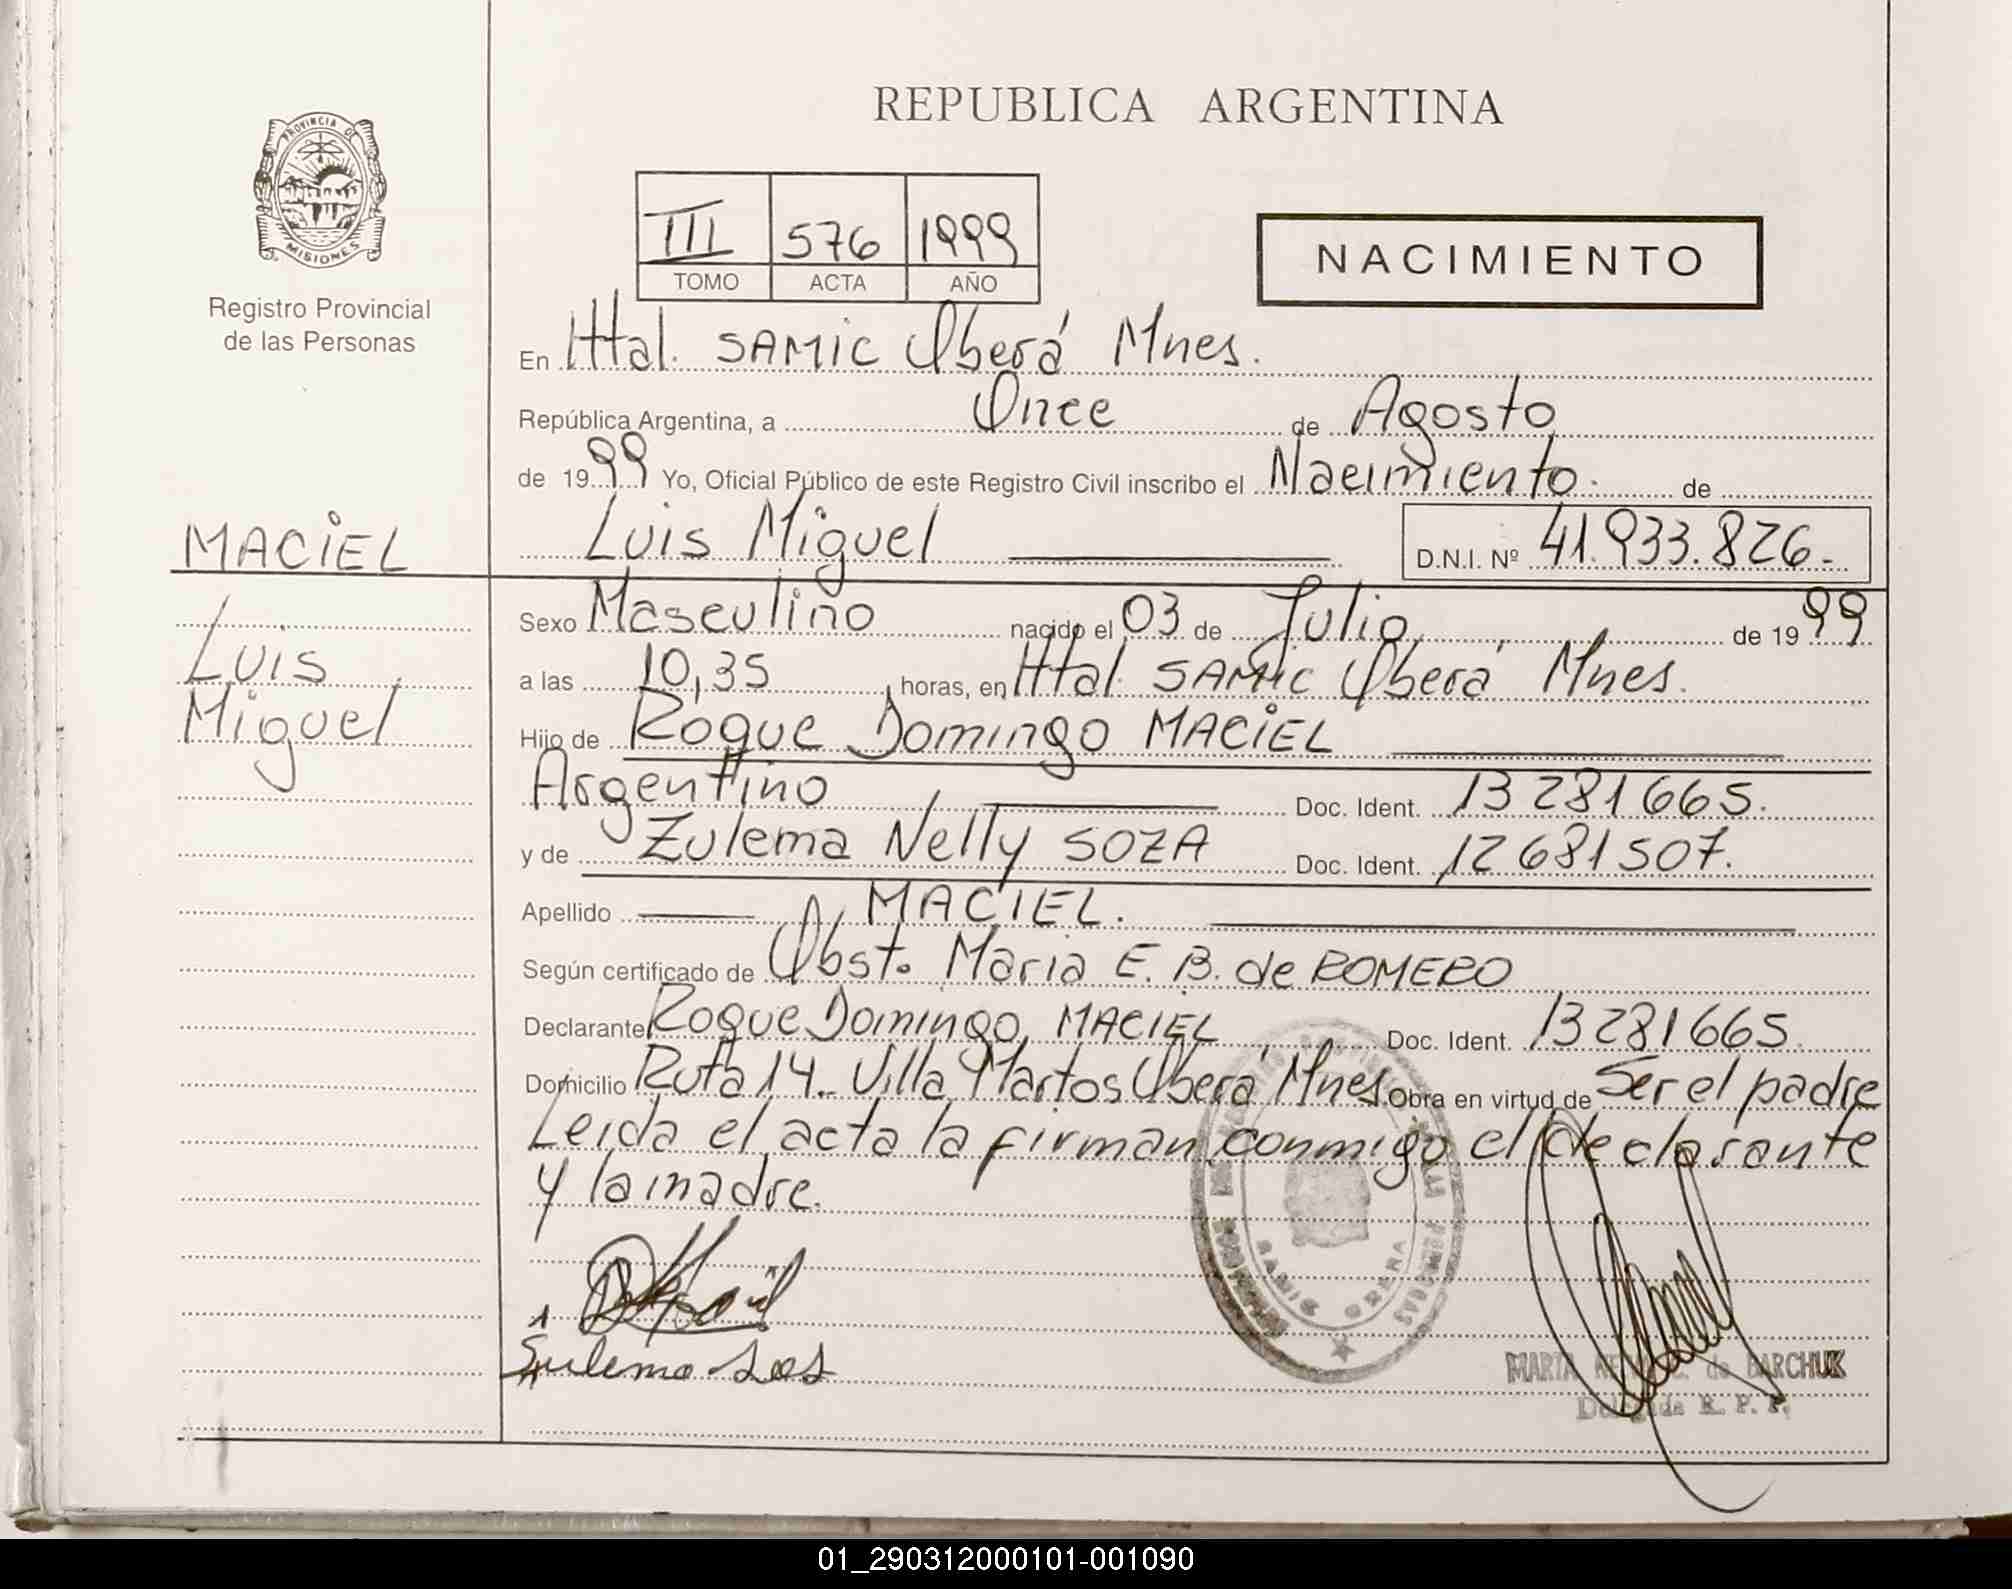 REPUBLICA ARGENTINA
PROVINCIA DE
MISIONES
Registro Provincial
de las Personas
III 576 1999
TOMO ACTA AÑO
NACIMIENTO
En Htal. SAMIC Oberá Mnes.
República Argentina, a Once de Agosto
de 1999 Yo, Oficial Público de este Registro Civil inscribo el Nacimiento. de
MACIEL
Luis Miguel D.N.I. Nº 41.933.826.-
Luis
Miguel
Sexo Masculino nacido el 03 de Julio de 1999
a las 10,35 horas, en Htal. SAMIC Oberá Mnes.
Hijo de Roque Domingo MACIEL
Argentino Doc. Ident. 13281665.
y de Zulema Nelly SOZA Doc. Ident. 12681507.
Apellido MACIEL.
Según certificado de Obst. Maria E. B. de ROMERO
Declarante Roque Domingo MACIEL Doc. Ident. 13281665.
Domicilio Ruta 14.. Villa Martos Oberá Mnes. Obra en virtud de Ser el padre
Leida el acta la firman conmigo el declarante
y la madre.
SAMIC OBERA
de BARCHUK
Delegada R. P. P.
01_290312000101-001090